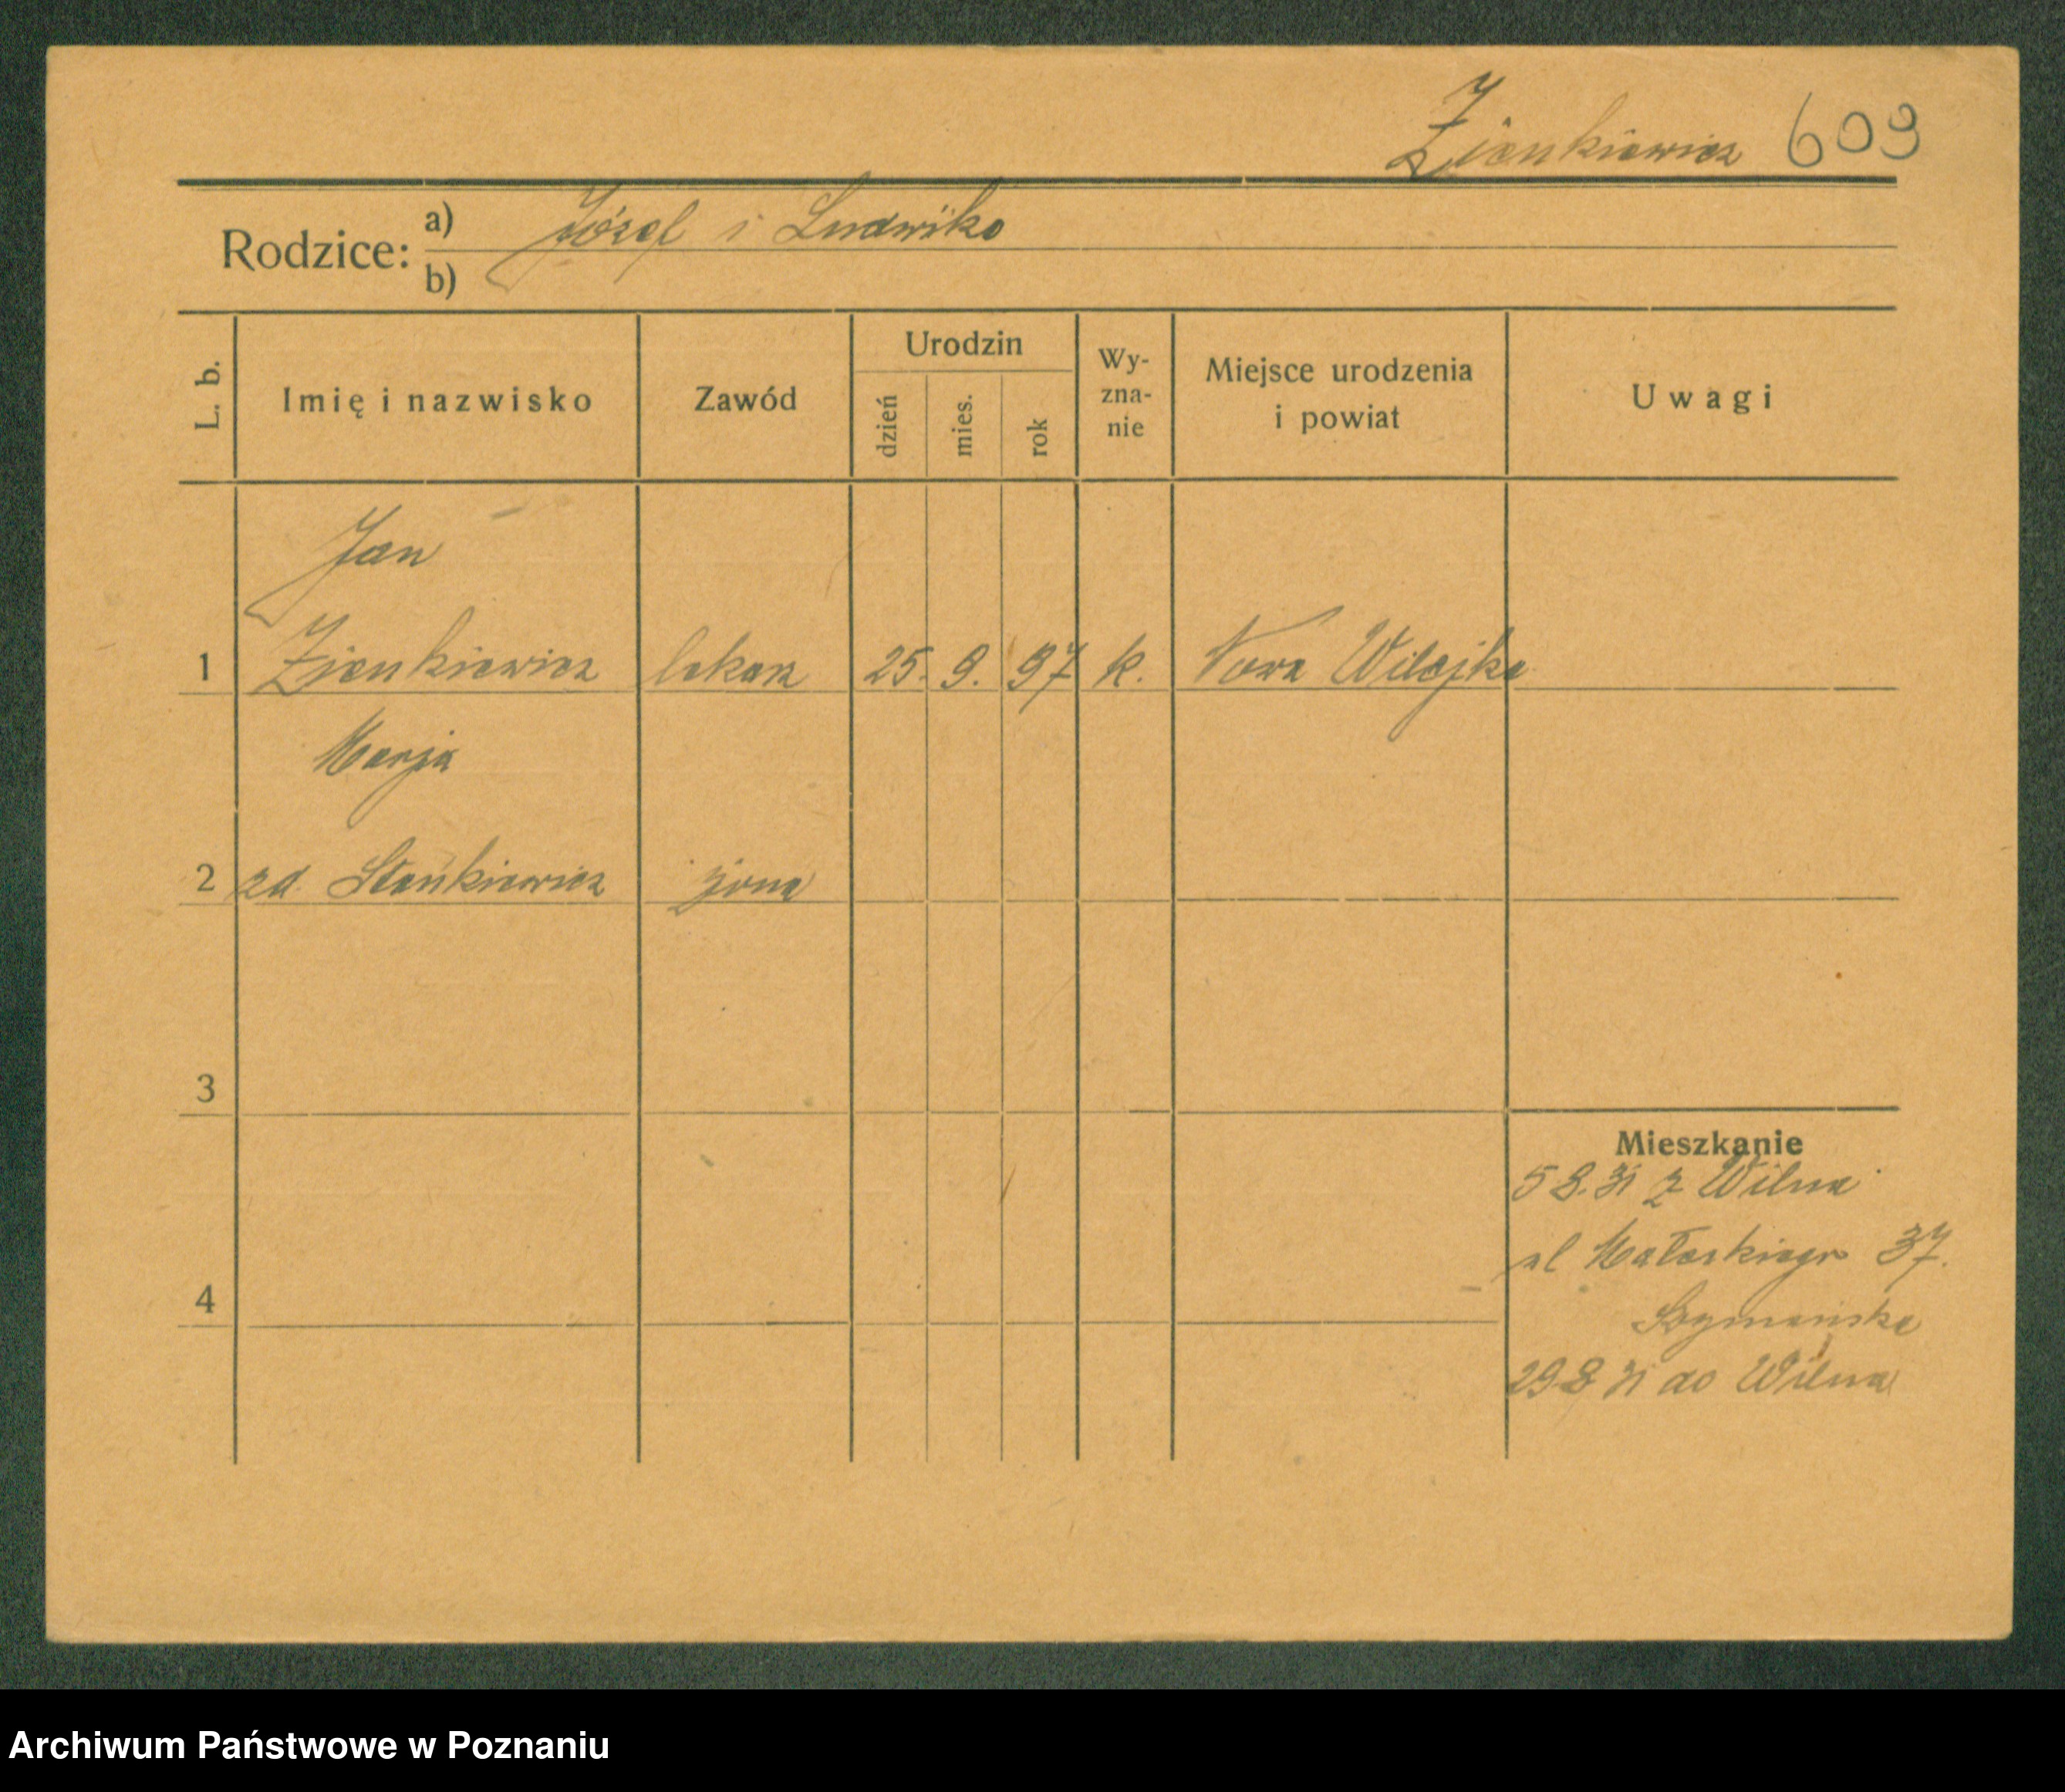 Zienkiewicz 609
Rodzice:
a) Józef i Ludwika
b)
L. b.
Imię i nazwisko
Zawód
Urodzin
dzień
mies.
rok
Wy-
zna-
nie
Miejsce urodzenia
i powiat
Uwagi
Jan
1 Zienkiewicz lekarz 25. 9. 97 k. Nowa Wilejka
Marja
2 zd. Stankiewicz żona
3
4
Mieszkanie
5 8. 31 z Wilna
ul Małeckiego 37.
Szymańska
29 8 31 do Wilna
Archiwum Państwowe w Poznaniu